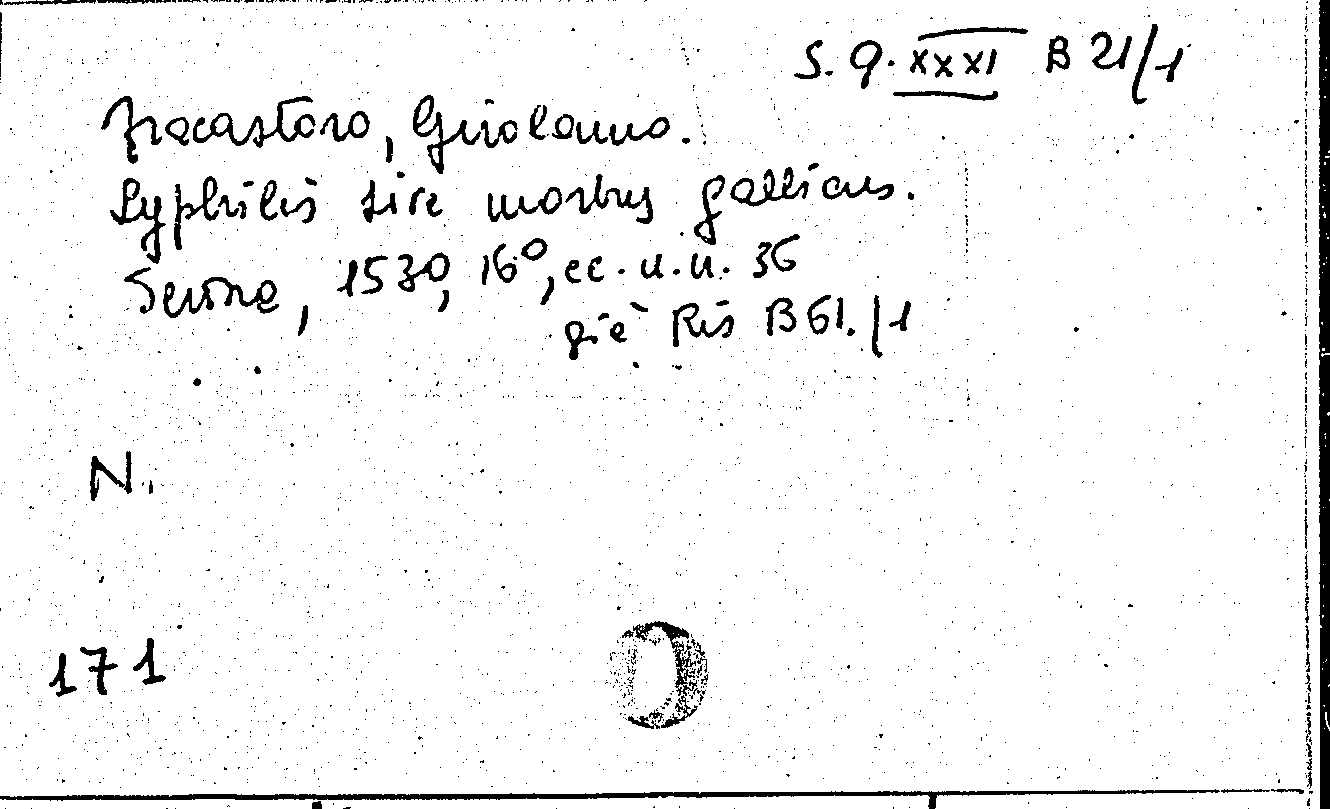 S. Q. XXXI B 21/1
Fracastoro, Girolamo.
Syphilis sive morbus gallicus.
Verona, 1530, 16°, cc. n. n. 36
già Ris B 61./1
N.
171